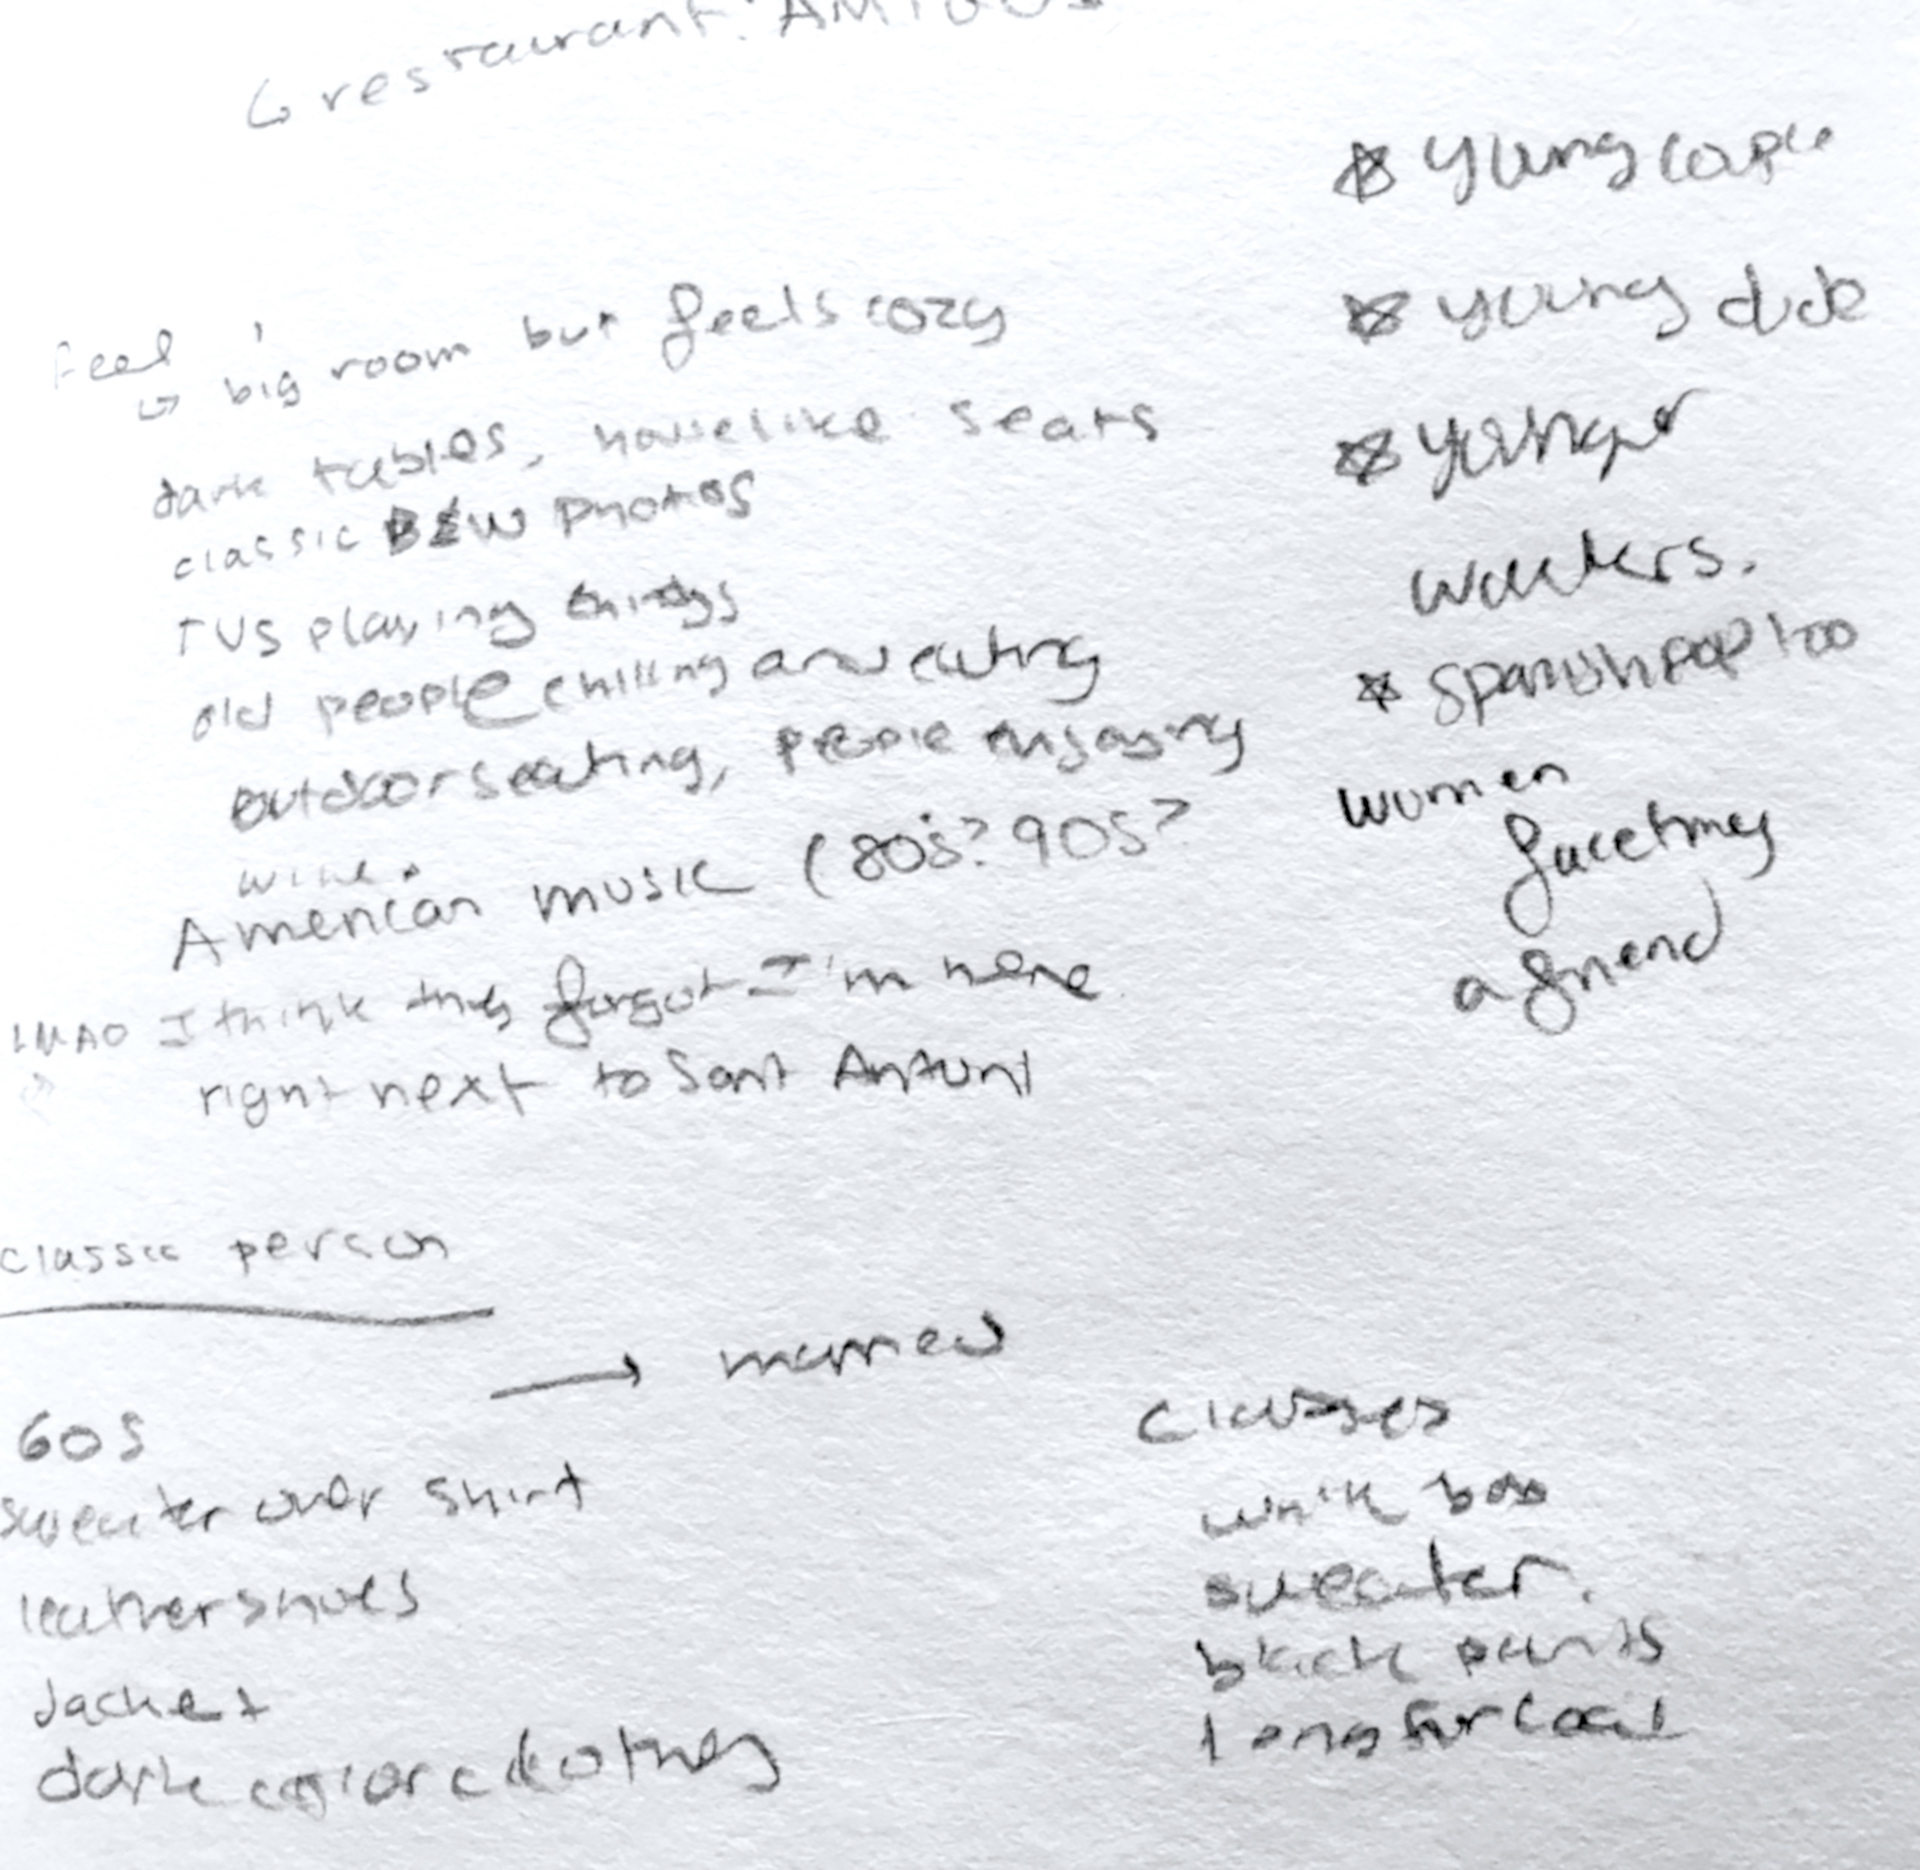 ↳ restaurant: AMIGOS
feel
↳ big room but feels cozy
dark tables, houselike seats
classic B&W photos
TVs playing things
old people chilling and eating
outdoor seating, people enjoying
wine.
American music (80s? 90s?
LMAO I think they forgot I'm here
right next to Sant Antoni
☆ young couple
☆ young dude
☆ younger
waiters.
☆ Spanish pop too
women
facetiming
a friend
classic person
→ married
60s
sweater over shirt
leather shoes
Jacket
dark color clothing
sweater.
black pants
long fur coat